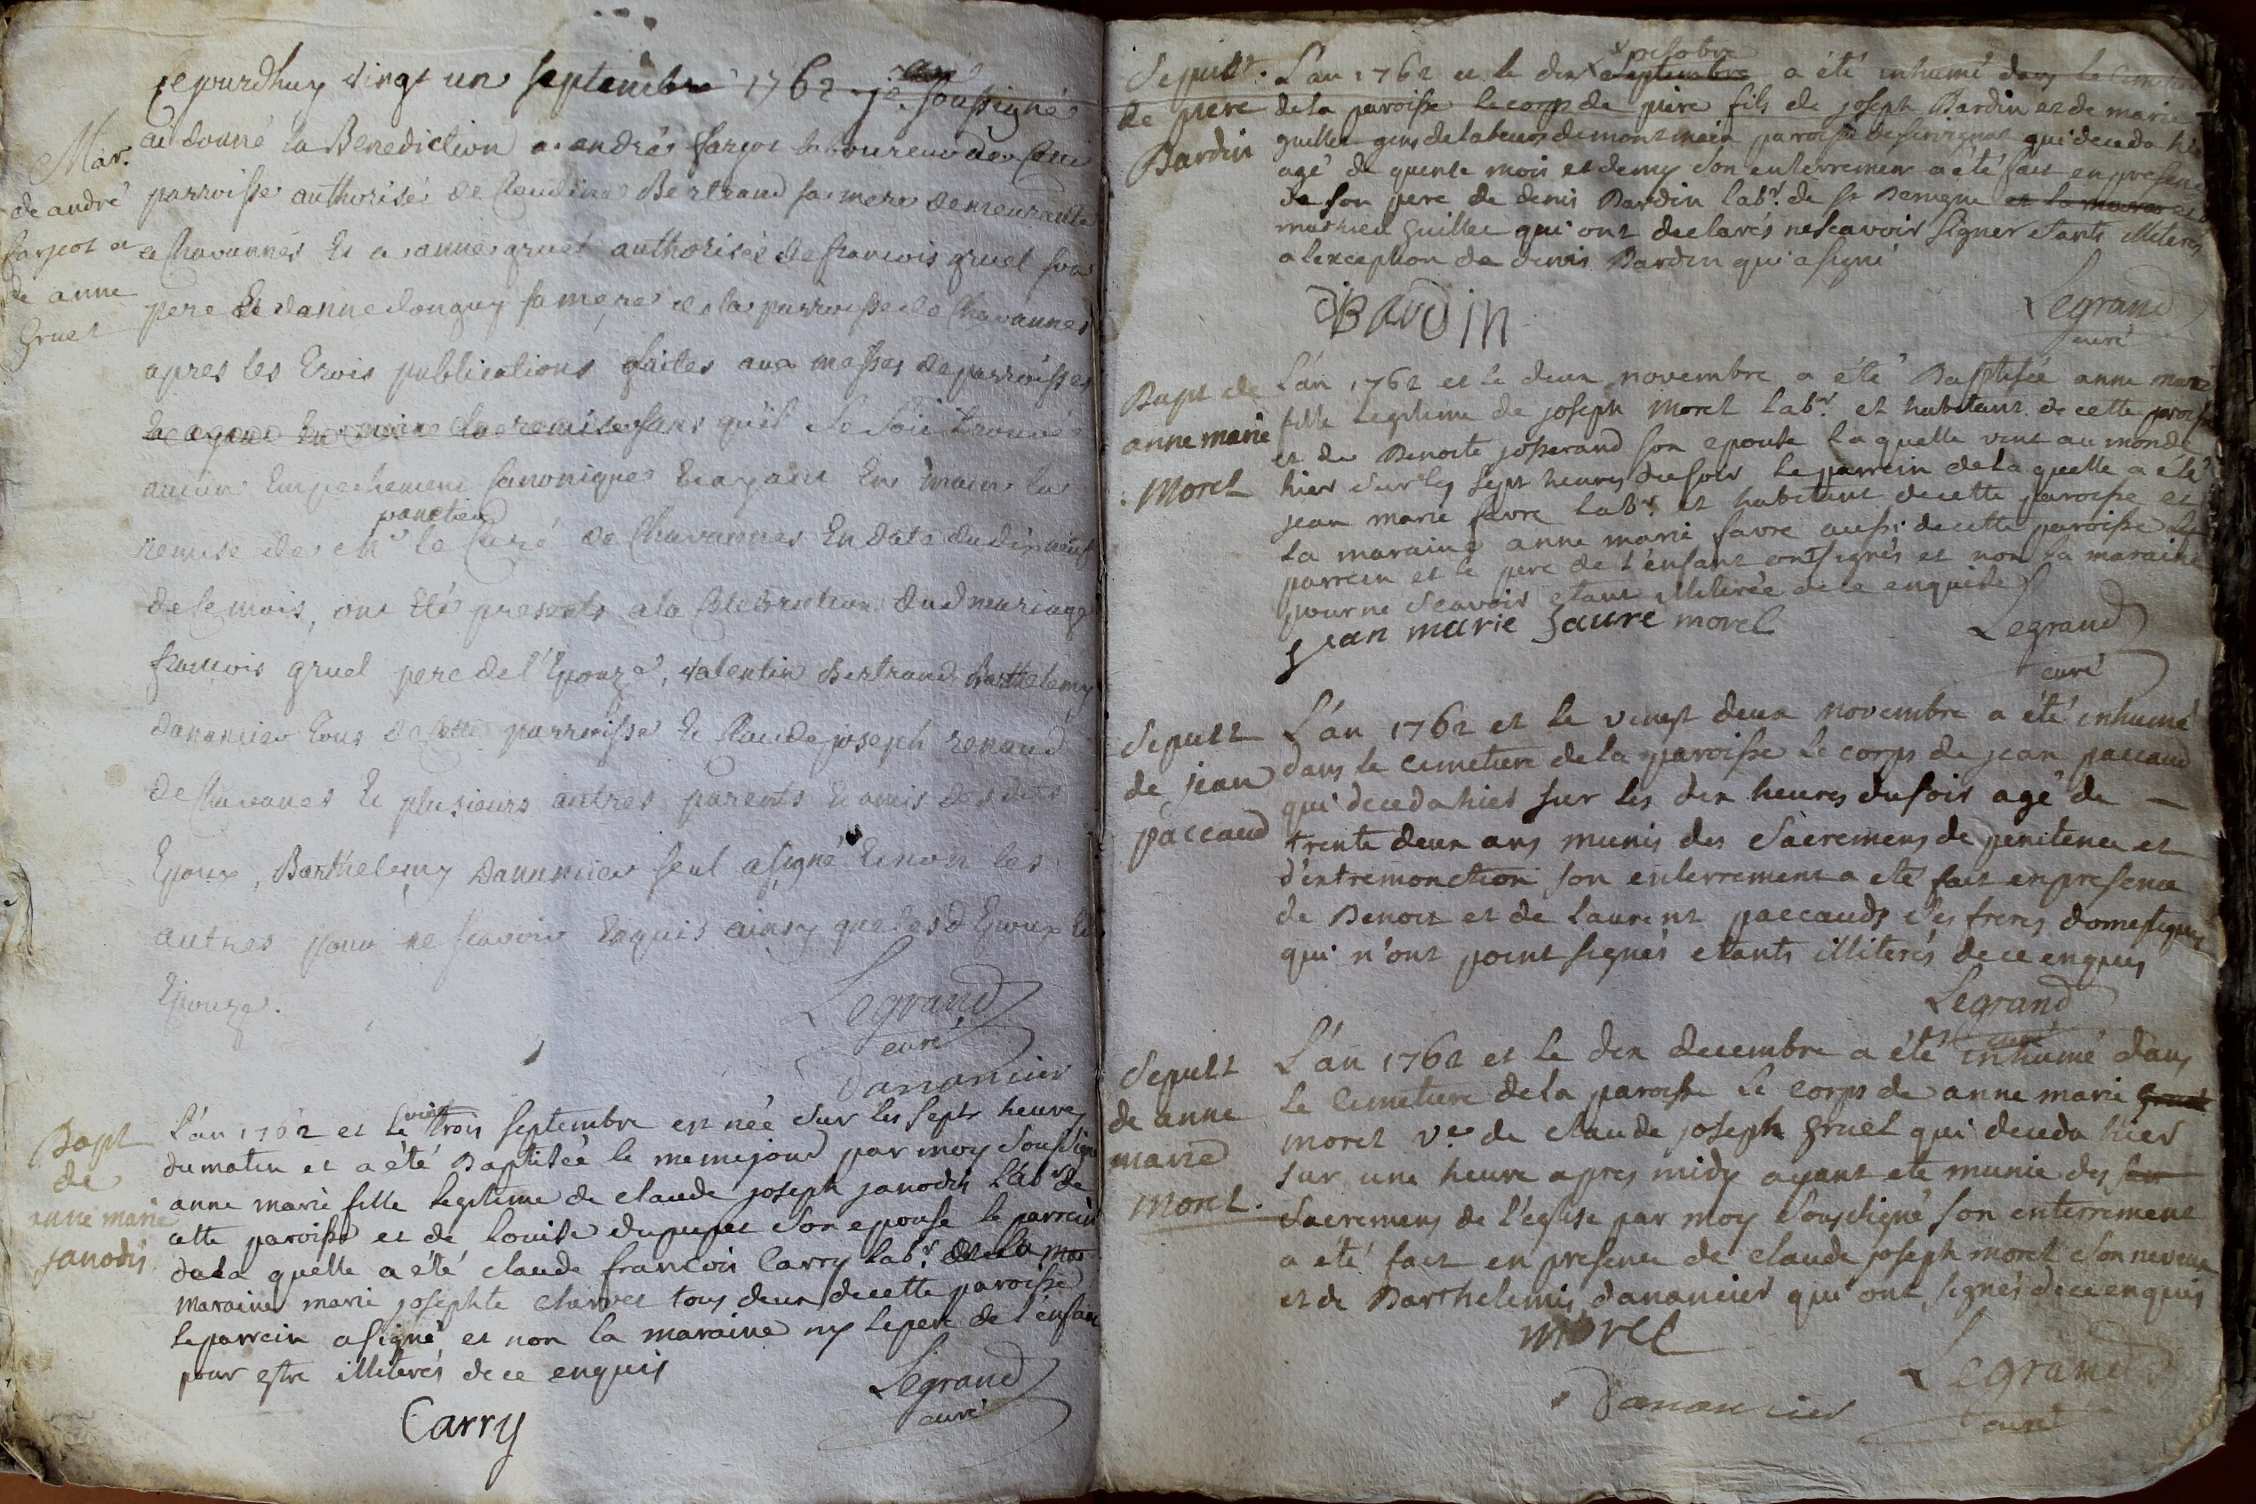 Cejourdhuy vingt un septembre 1762 je soussigné
Mar.
de andré
farjot et
de anne
Gruel
ai donné la Benediction a andré farjot laboureur de cette
parroisse authorisé de Claudine Bertrand sa mere demeurante
a Chavannes et a anne gruel authorisée de francois gruel son
pere et danne Longuy sa mere de la parroisse de Chavannes
apres les trois publications faites aux messes de parroisses
sans quil se soit trouvé
aucun Empechement Canonique et ayant En main la
remise de Mr ponctied le Curé de Chavannes En date du dix neuf
de ce mois, ont été presents a la Celebration dud mariage
francois gruel pere de l'Epouze, valentin Bertrand Barthelemy
dananciev tous de cette parroisse et Claude joseph renaud
de Chavanes et plusieurs autres parents et amis des dits
Epoux, Barthelemy Danancier seul a signé et non les
autres pour ne scavoir Enquis ainsy que lesd Epoux et
Epouze.
Legrand
curé
Danancier
Bapt
de
anne marie
janodis
L'an 1762 et le vint trois septembre est née sur les sept heures
du matin et a été Baptisée le meme jour par moy soussigné
anne marie fille legitime de claude joseph janodis lab.r de
cette paroisse et de Louise dupupet son epouse le parrein
de la quelle a été claude francois Carry lab.r de la mar
maraine marie josephte charvet tous deux de cette paroisse
le parrein a signé et non la maraine ny le pere de l'enfant
pour estre illiterés de ce enquis
Legrand
curé
Carry
Sepult.
de piere
Bardin
L'an 1762 et le dix septembre octobre a été inhumé dans le cimetiere
de la paroisse le corps de piere fils de joseph Bardin et de marie
guillet gens de labeurs de montmein paroisse de servignat qui deceda hier
agé de quinse mois et demy son enterrement a été fait en presence
de son pere de denis Bardin lab.r de st Benigne et la marene et de
mathieu guillet qui ont declarés ne scavoir signer etants illiterés
a l'exception de denis Bardin qui a signé
Legrand
curé
DBARDIN
Bapt de
anne marie
Morel
L'an 1762 et le deux novembre a été Baptisée anne marie
fille legitime de joseph Morel lab.r et habitant de cette paroisse
et de Benoite josserand son epouse la quelle vint au monde
hier sur les sept heures du soir le parrein de la quelle a été
jean marie favre lab.r et habitant de cette paroisse et
la maraine anne marie favre aussi de cette paroisse le
parrein et le pere de l'enfant ont signés et non la maraine
pour ne scavoir etant illiterée de ce enquise
jean marie faure morel
Legrand
curé
Sepult
de jean
paccaud
L'an 1762 et le vingt deux novembre a été inhumé
dans le cimetiere de la paroisse le corps de jean paccaud
qui deceda hier sur les dix heures du soir agé de —
trente deux ans munis des sacremens de penitence et
d'extremonction son enterrement a été fait en presence
de Benoit et de Laurent paccauds ses freres domestiques
qui n'ont point signés etants illiterés de ce enquis
Legrand
curé
Sepult
de anne
marie
Morel.
L'an 1762 et le dix decembre a été inhumé dans
le cimetiere de la paroisse le corps de anne marie Gruel
morel v.e de claude joseph gruel qui deceda hier
sur une heure apres midy ayant eté munie des sa
sacremens de l'eglise par moy soussigné son enterrement
a été fait en presence de claude joseph morel son neveux
et de Barthelemis danancier qui ont signés de ce enquis
morel
Legrand
Danancier
curé